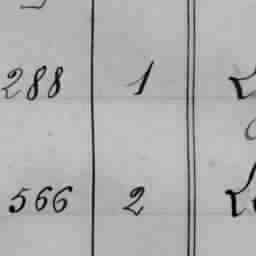 288 1
566 2